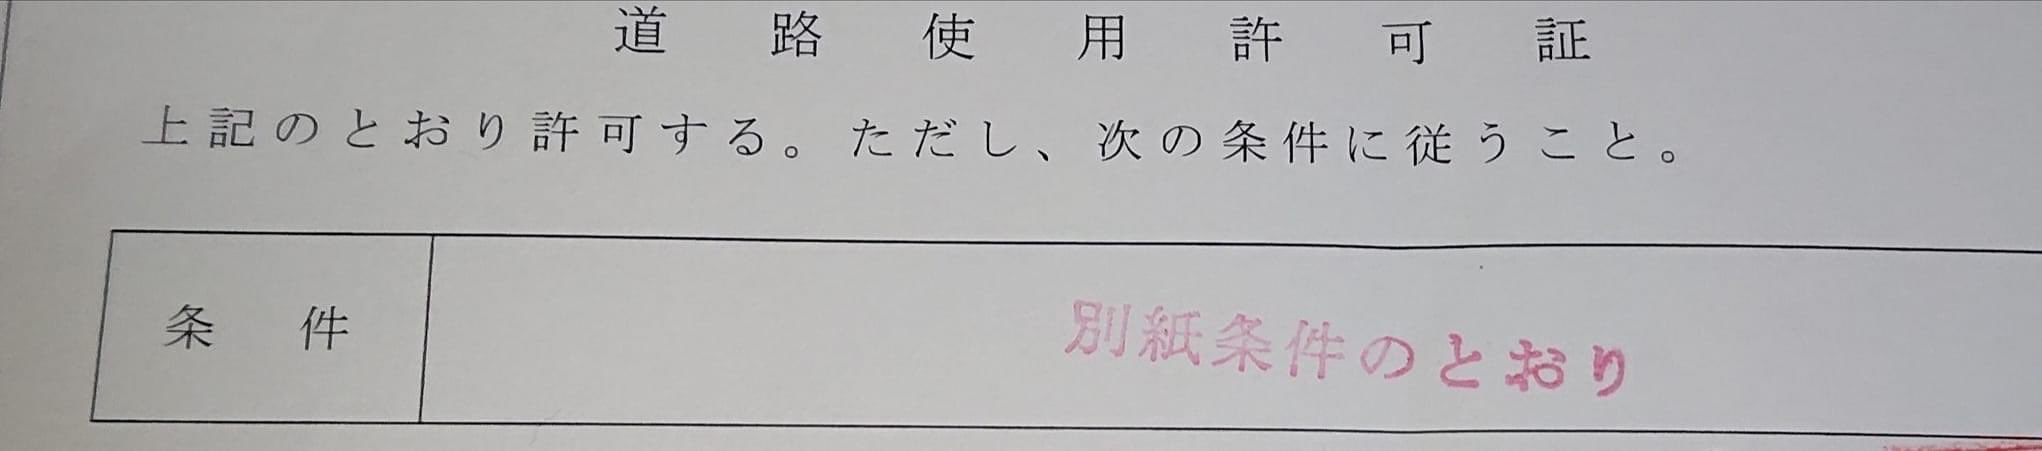 道路使用許可証
上記のとおり許可する。ただし、次の条件に従うこと。
条件
別紙条件のとおり